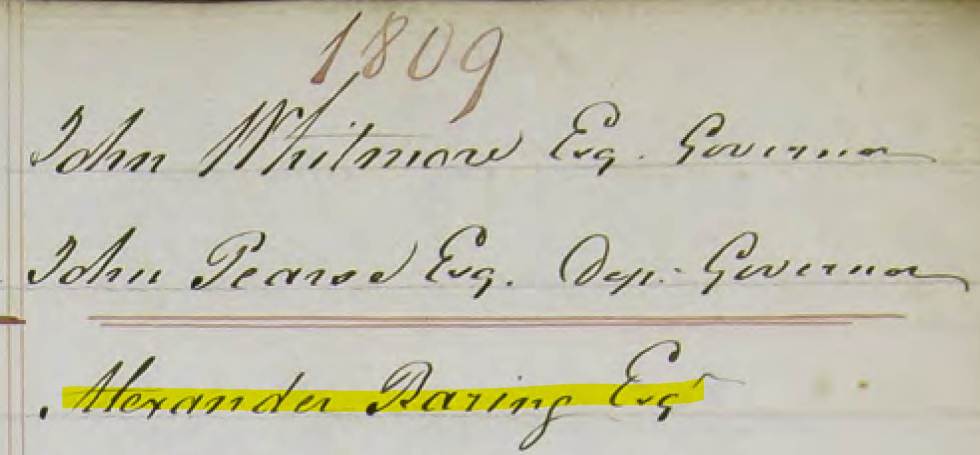 1809
John Whitmore Esq. Governor
John Pearse Esq. Dep: Governor
Alexander Baring Esqr